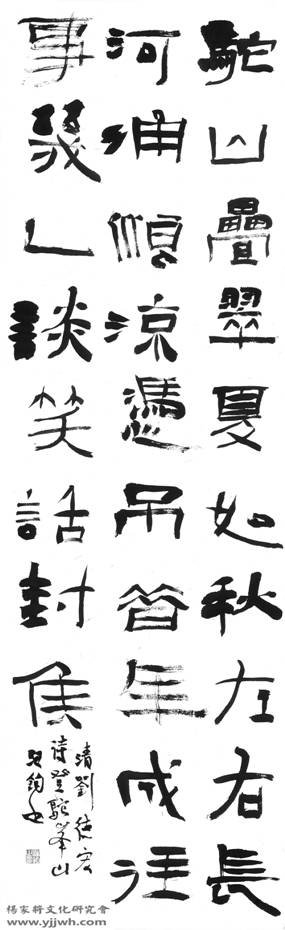 駝山疊翠夏如秋左右長
河浦順涼憑吊昔年成往
事幾人談笑話封侯
清劉德宏
诗登駝峯山
楊家將文化研究會
www.yjjwh.com